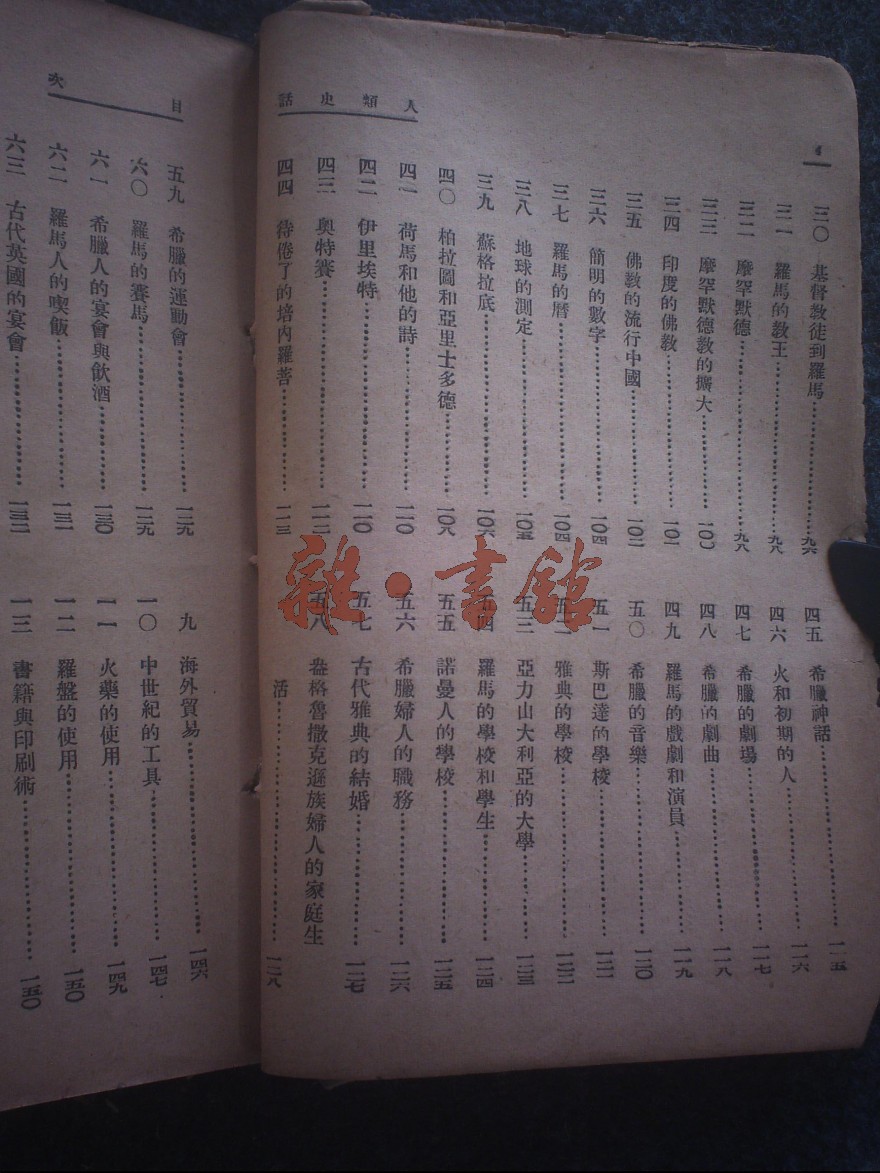 人類史話
三〇 基督教徒到羅馬………九六
三一 羅馬的教王………九八
三二 摩罕默德………九八
三三 摩罕默德教的擴大………一〇〇
三四 印度的佛教………一〇一
三五 佛教的流行中國………一〇二
三六 簡明的數字………一〇四
三七 羅馬的曆………一〇四
三八 地球的測定………一〇五
三九 蘇格拉底………一〇六
四〇 柏拉圖和亞里士多德………一〇八
四一 荷馬和他的詩………一一〇
四二 伊里埃特………一一〇
四三 奧特賽………一一二
四四 待倦了的培內羅菩………一一三
四五 希臘神話………一一五
四六 火和初期的人………一一六
四七 希臘的劇場………一一七
四八 希臘的劇曲………一一八
四九 羅馬的戲劇和演員………一一九
五〇 希臘的音樂………一二〇
五一 斯巴達的學校………一二一
五二 雅典的學校………一二二
五三 亞力山大利亞的大學………一二三
五四 羅馬的學校和學生………一二四
五五 諾曼人的學校………一二五
五六 希臘婦人的職務………一二六
五七 古代雅典的結婚………一二七
五八 盎格魯撒克遜族婦人的家庭生
活………一二八
目次
五九 希臘的運動會………一二九
六〇 羅馬的賽馬………一二九
六一 希臘人的宴會與飲酒………一三〇
六二 羅馬人的喫飯………一三一
六三 古代英國的宴會………一三二
九 海外貿易………一四六
一〇 中世紀的工具………一四七
一一 火藥的使用………一四九
一二 羅盤的使用………一五〇
一三 書籍與印刷術………一五〇
雜·書館